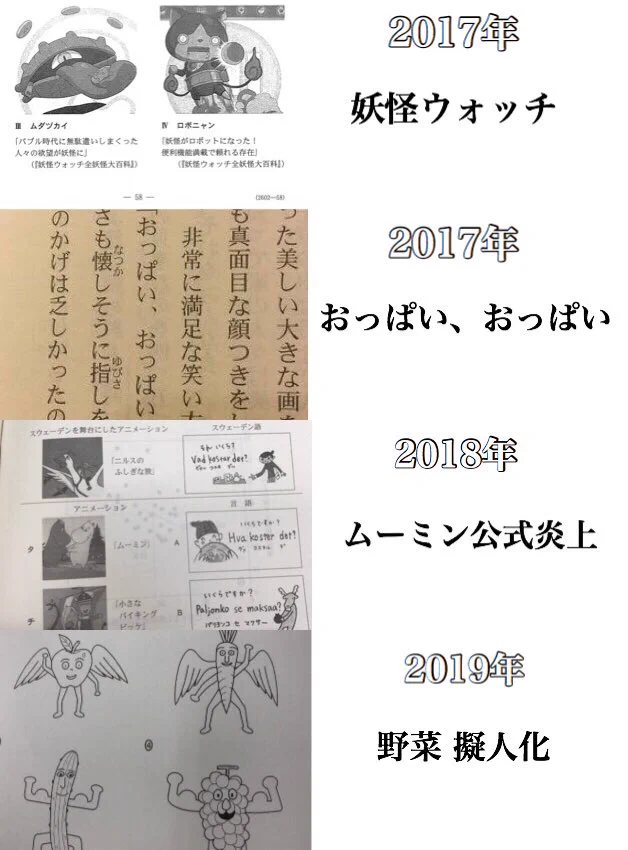 2017年
妖怪ウォッチ
Ⅲ ムダヅカイ
「バブル時代に無駄遣いしまくった
人々の欲望が妖怪に」
(『妖怪ウォッチ全妖怪大百科』)
Ⅳ ロボニャン
「妖怪がロボットになった!
便利機能満載で頼れる存在」
(『妖怪ウォッチ全妖怪大百科』)
— 58 —
(2602—58)
2017年
おっぱい、おっぱい
った美しい大きな画
も真面目な顔つきをし
非常に満足な笑い
「おっぱい、おっぱい
さも懐しそうに指しを
なつか
ゆびさ
のかげは乏しかったの
2018年
ムーミン公式炎上
スウェーデンを舞台にしたアニメーション
スウェーデン語
「ニルスの
ふしぎな旅」
いくら?
Vad kostar det?
アニメーション
言語
タ
「ムーミン」
A
いくらですか?
Hva koster det?
チ
「小さな
バイキング
ビッケ」
B
いくらですか?
Paljonko se maksaa?
パリヨンコ セ マクサー
2019年
野菜 擬人化
④